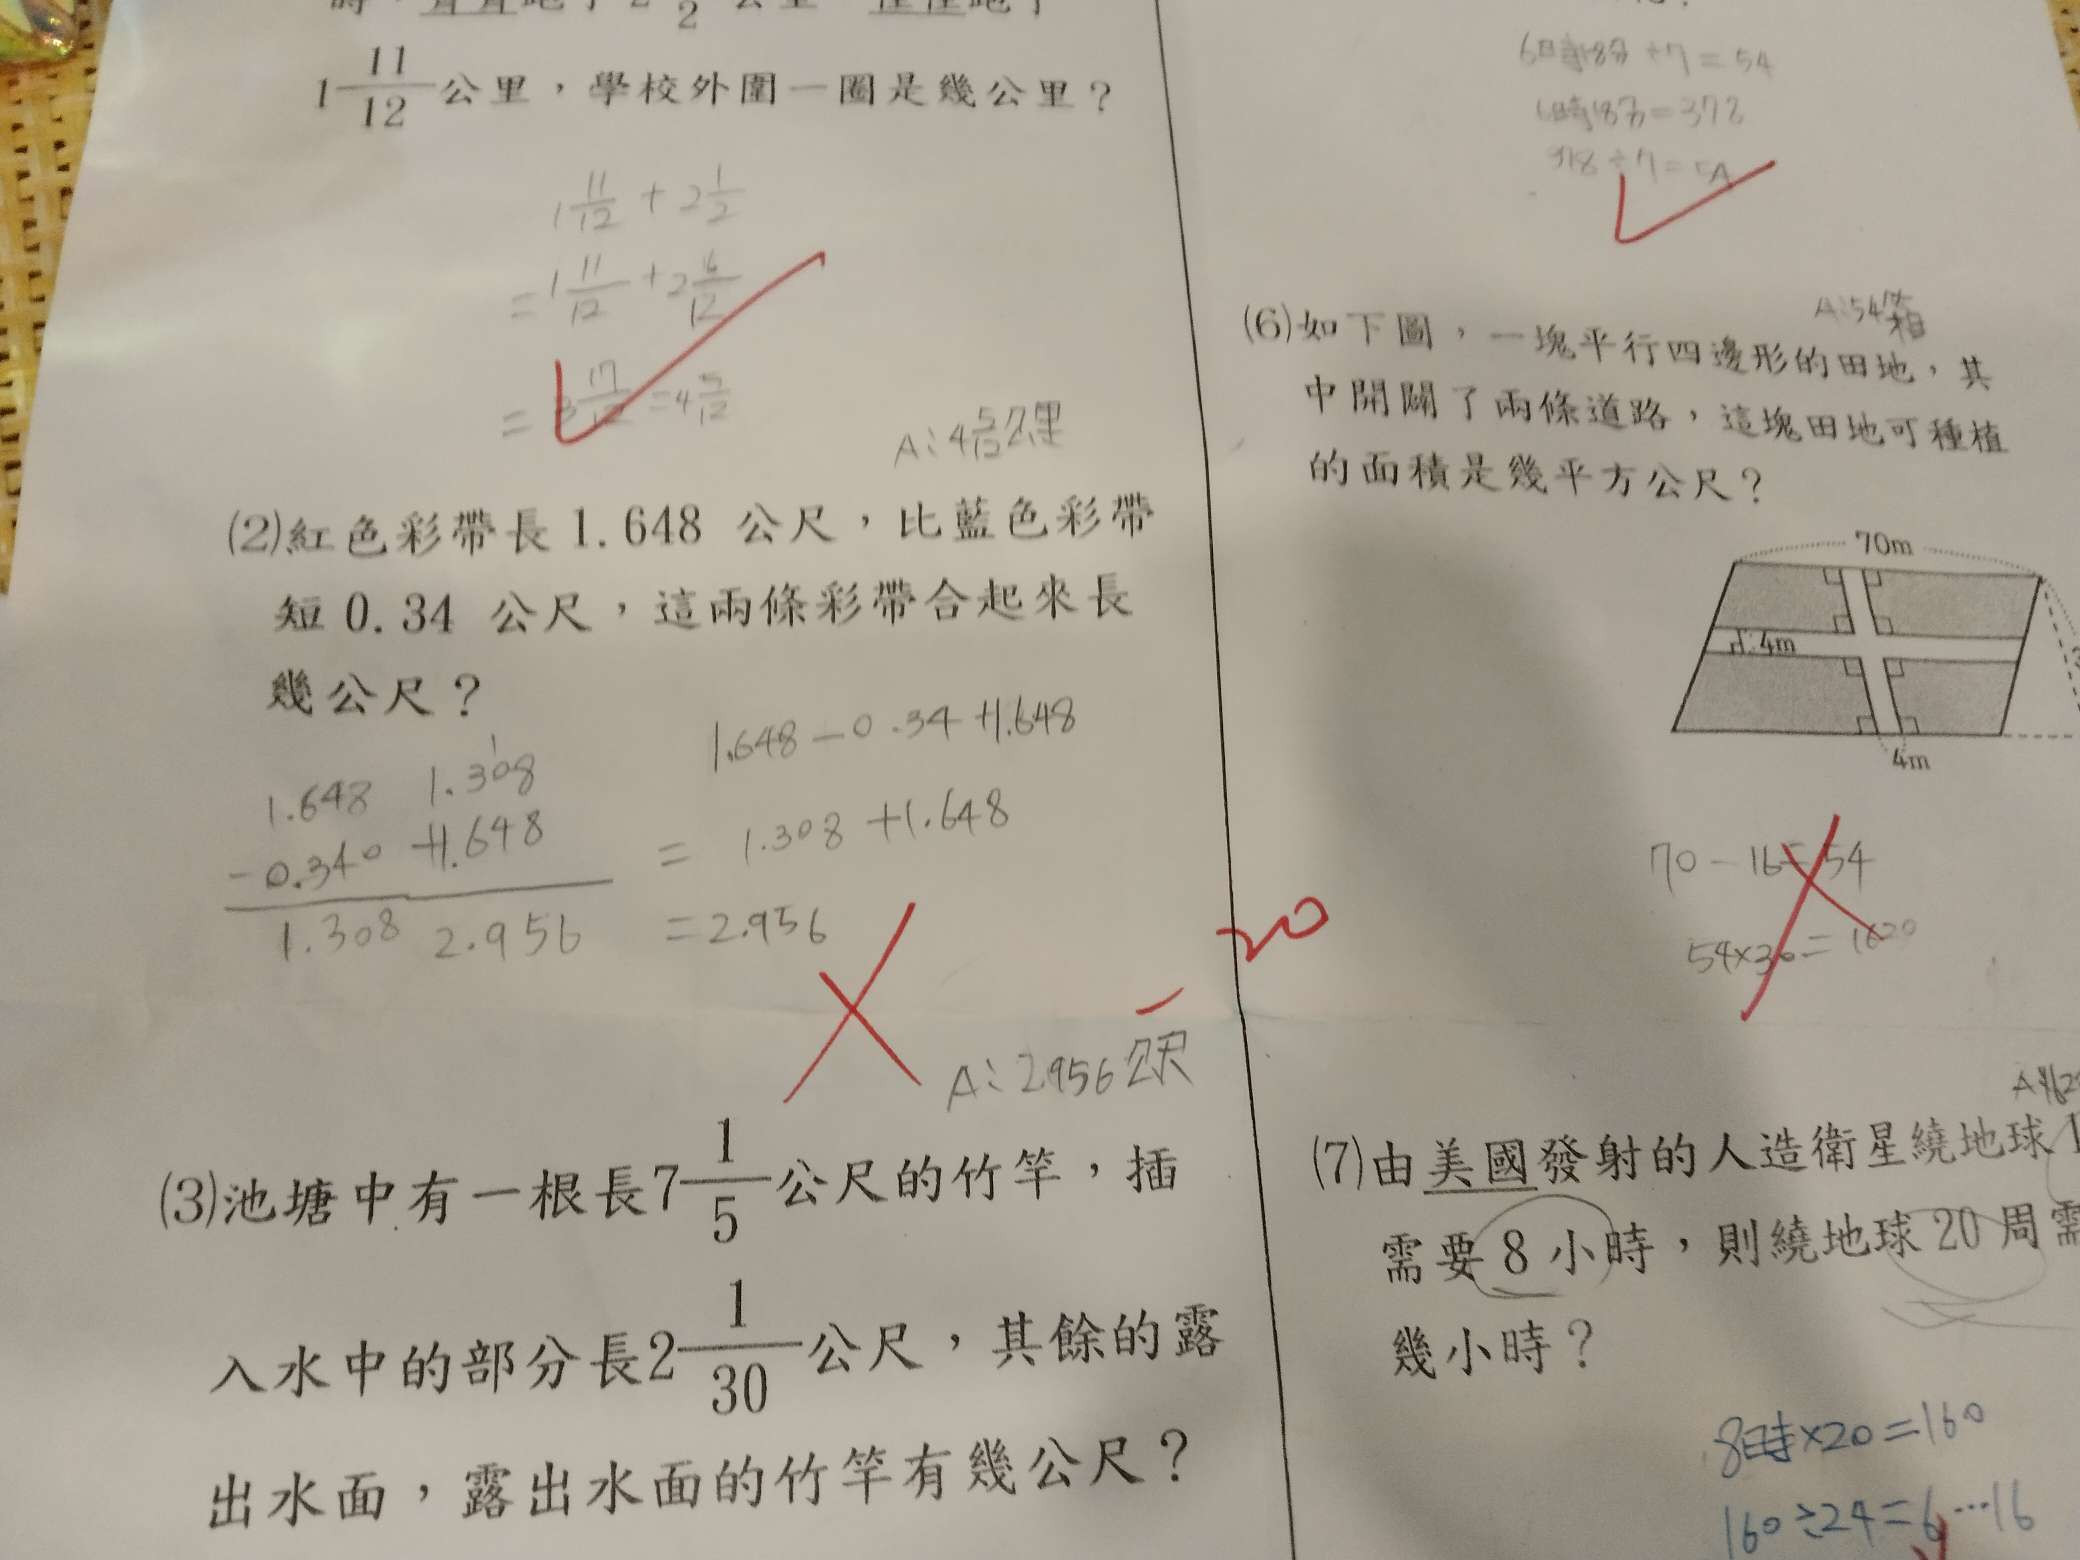 1 11/12 公里，學校外圍一圈是幾公里？
1 11/12 + 2 1/2
= 1 11/12 + 2 6/12
= 3 17/12 = 4 5/12
A：4 5/12 公里
(2)紅色彩帶長 1.648 公尺，比藍色彩帶
短 0.34 公尺，這兩條彩帶合起來長
幾公尺？
1.648 - 0.34 + 1.648
= 1.308 + 1.648
= 2.956
1.648
- 0.340
1.308
1
1.308
+ 1.648
2.956
A：2.956 公尺
(3)池塘中有一根長 7 1/5 公尺的竹竿，插
入水中的部分長 2 1/30 公尺，其餘的露
出水面，露出水面的竹竿有幾公尺？
20
6時18分 ÷ 7 = 54
÷ 7 =
A：54箱
(6)如下圖，一塊平行四邊形的田地，其
中開闢了兩條道路，這塊田地可種植
的面積是幾平方公尺？
70m
4m
4m
70 - 16 = 54
54×30 = 1620
(7)由美國發射的人造衛星繞地球
需要 8 小時，則繞地球 20 周需
幾小時？
8時×20=160
160÷24=6…16